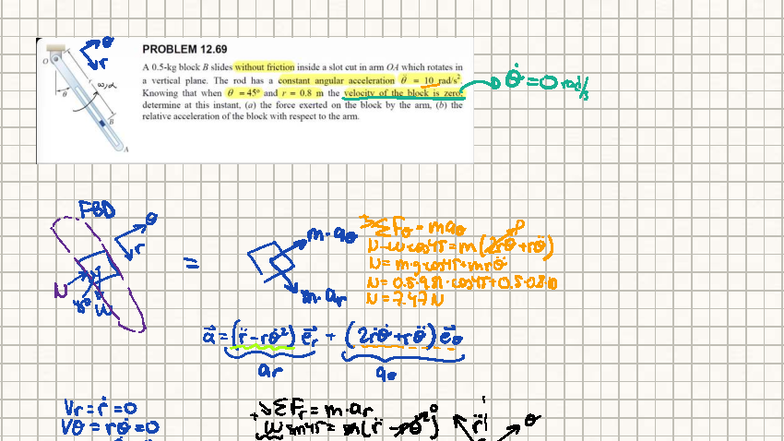 θ
r
PROBLEM 12.69
A 0.5-kg block B slides without friction inside a slot cut in arm OA which rotates in
a vertical plane. The rod has a constant angular acceleration θ̈ = 10 rad/s².
Knowing that when θ = 45° and r = 0.8 m the velocity of the block is zero,
determine at this instant, (a) the force exerted on the block by the arm, (b) the
relative acceleration of the block with respect to the arm.
θ̇ = 0 rad/s
O
r
θ
ω,α
B
A
FBD
θ
r
N
45°
W
=
m·aθ
m·ar
ΣFθ = maθ
N-wcos45=m(2ṙθ̇+rθ̈)
0
N=m·g cos45+mrθ̈
N=0.5·9.81·cos45+0.5·0.8·10
N=7.47 N
a⃗ = (r̈-rθ̇²) e⃗r + (2ṙθ̇+rθ̈) e⃗θ
ar
aθ
Vr = ṙ = 0
Vθ = rθ̇ = 0
+↘ΣFr = m·ar
W sin45 = m(r̈ - rθ̇²)
0
r̈
θ